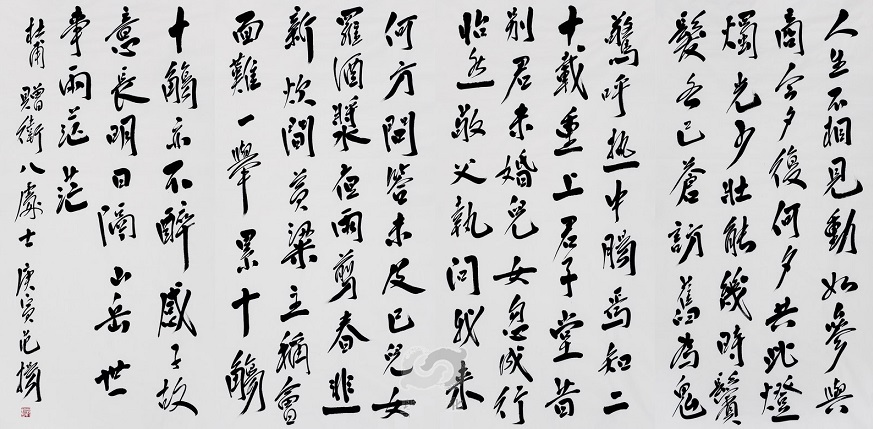 人生不相見動如參與
商今夕復何夕共此燈
燭光少壯能幾時鬢
髮各已蒼訪舊為鬼
驚呼熱中腸焉知二
十載重上君子堂昔
別君未婚兒女忽成行
怡然敬父執問我來
何方問答未及已兒女
羅酒漿夜雨剪春韭
新炊間黃粱主稱會
面難一舉累十觴
十觴亦不醉感子故
意長明日隔山岳世
事兩茫茫
杜甫贈衛八處士庚寅范